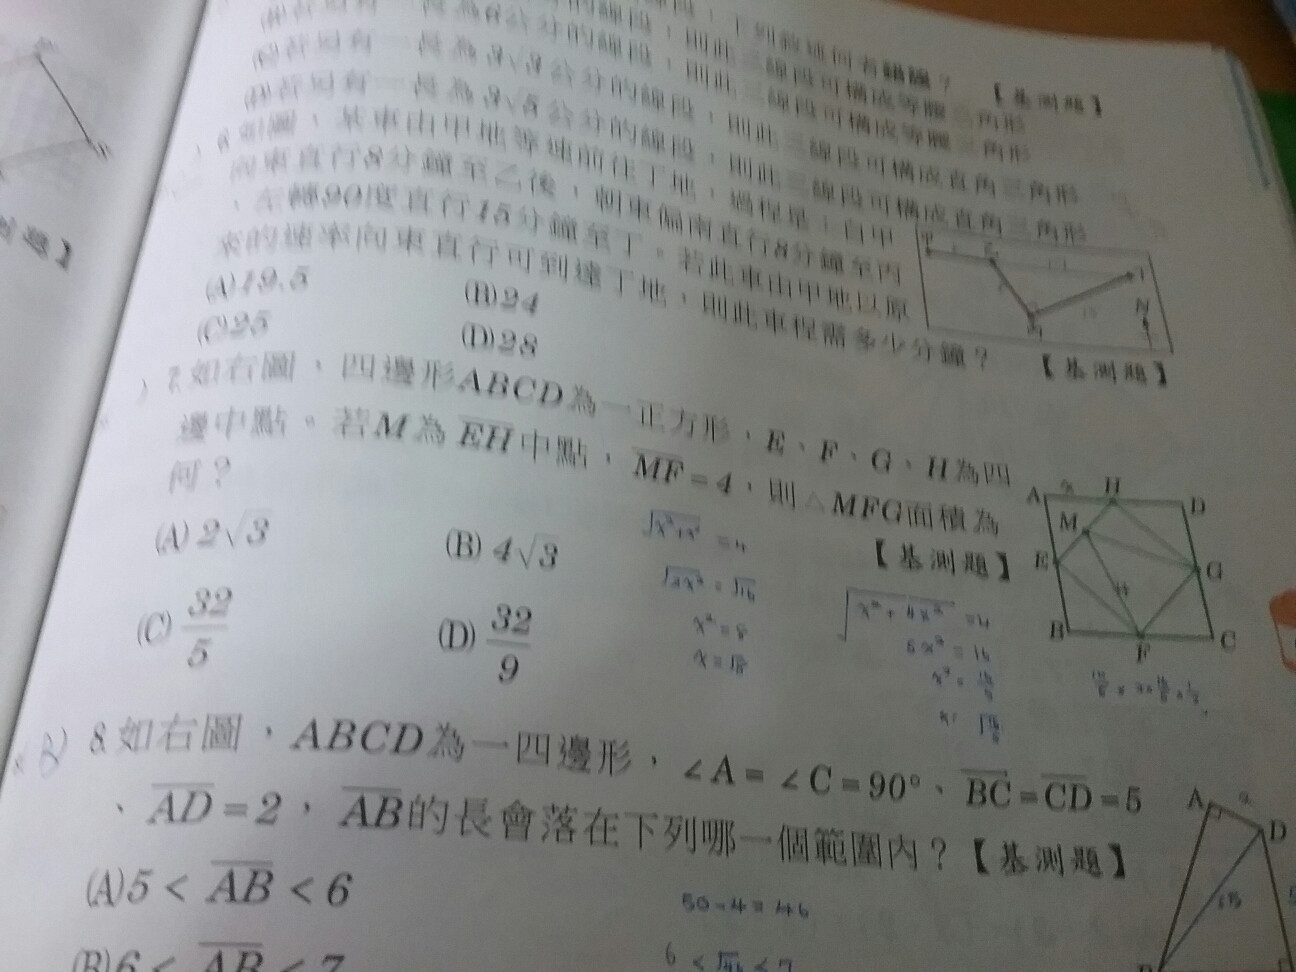 下列敘述何者錯誤？ 【基測題】
則此三線段可構成等腰三角形
公分的線段，則此三線段可構成等腰三角形
(C)若另有一長為3√3公分的線段，則此三線段可構成直角三角形
(D)若另有一長為3√5公分的線段，則此三線段可構成直角三角形
6.如圖，某車由甲地等速前往丁地，過程是：自甲
向東直行8分鐘至乙後，朝東偏南直行8分鐘至丙
、左轉90度直行15分鐘至丁。若此車由甲地以原
來的速率向東直行可到達丁地，則此車程需多少分鐘？ 【基測題】
(A)19.5 (B)24
(C)25 (D)28
丙
N
題】
7.如右圖，四邊形ABCD為一正方形，E、F、G、H為四
邊中點。若M為EH中點，MF=4，則△MFG面積為
何？ 【基測題】
(A) 2√3 (B) 4√3
(C) 32/5 (D) 32/9
A H D
M
E G
B F C
√x²+x² = 4
√2x² = √16
x² = 8
x = √8
√x²+4x² = 4
5x² = 16
8.如右圖，ABCD為一四邊形，∠A=∠C=90°、BC=CD=5
、AD=2，AB的長會落在下列哪一個範圍內？【基測題】
(A)5 < AB < 6
(B)6 < AB < 7
50-4=46
6 < √46 < 7
A
D